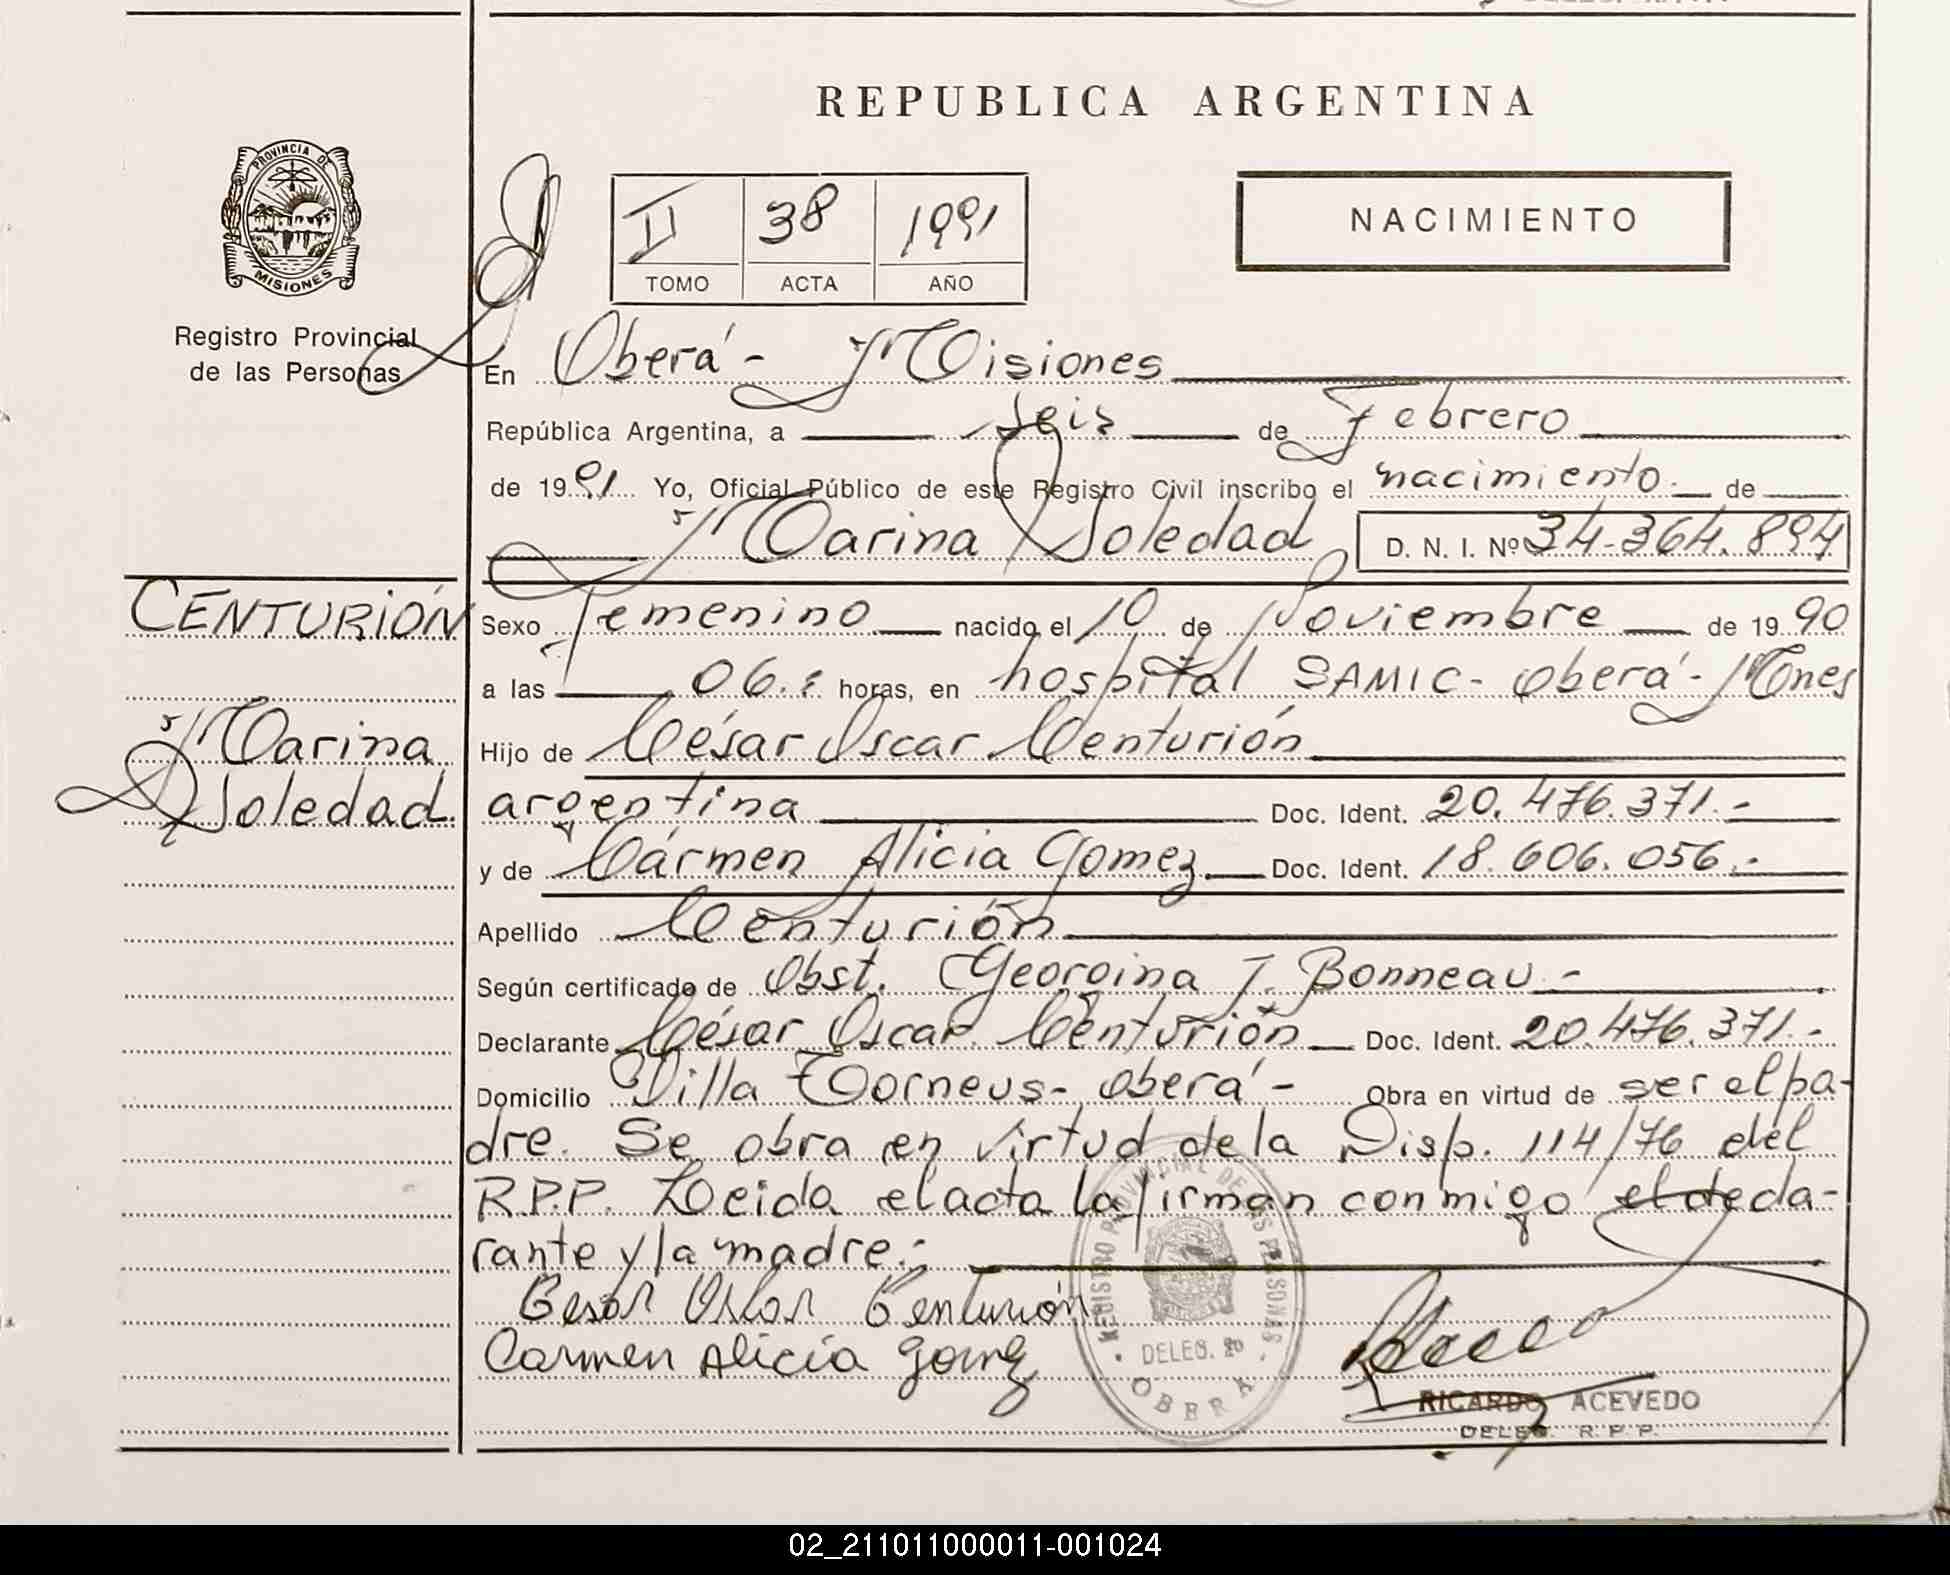 REPUBLICA ARGENTINA
PROVINCIA DE
MISIONES
Registro Provincial
de las Personas
II 38 1991
TOMO ACTA AÑO
NACIMIENTO
En Oberá - Misiones
República Argentina, a seis de Febrero
de 1991 Yo, Oficial Público de este Registro Civil inscribo el nacimiento de
Marina Soledad D. N. I. Nº 34.364.894
CENTURIÓN
Marina
Soledad.
Sexo Femenino nacido el 10 de Noviembre de 1990
a las 06.: horas, en hospital SAMIC - Oberá - Mnes
Hijo de César Oscar Centurión
argentina Doc. Ident. 20.476.371.-
y de Cármen Alicia Gomez. Doc. Ident. 18.606.056.-
Apellido Centurión
Según certificado de Obst. Georgina T. Bonneau.-
Declarante César Oscar Centurión Doc. Ident. 20.476.371.-
Domicilio Villa Torneus - Oberá - Obra en virtud de ser el pa-
dre. Se obra en virtud de la Disp. 114/76 del
R.P.P. Leida el acta la firman conmigo el decla-
rante y la madre.-
Cesar Oscar Centurión
Carmen Alicia Gomez
REGISTRO PROVINCIAL DE LAS PERSONAS
DELEG.
OBERA
RICARDO ACEVEDO
DELEG. R. P. P.
02_211011000011-001024